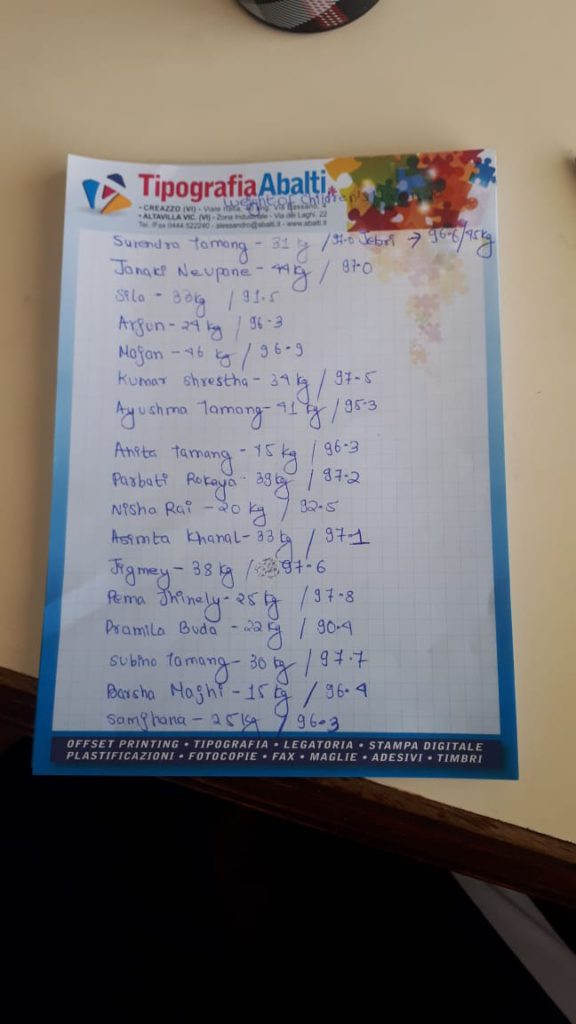 TipografiaAbalti
Weight of Children's
• CREAZZO (VI) - Viale Italia, Ang. Via Bassano, 4
• ALTAVILLA VIC. (VI) - Zona Industriale - Via dei Laghi, 22
Tel. /Fax 0444.522240 - alessandro@abalti.it - www.abalti.it
Surendra Tamang - 31 kg / 97.0 Jebri → 96-6/45kg
Janaki Neupane - 44kg / 97.0
Sila - 33kg / 91.5
Arjun - 24 kg / 96.3
Mojan - 46 kg / 96-9
Kumar Shrestha - 34 kg / 97-5
Ayushma Tamang - 41 kg / 95.3
Anita Tamang - 45kg / 96.3
Parbati Rokaya - 39kg / 97.2
Nisha Rai - 20 kg / 92.5
Asimta Khanal - 33 kg / 97-1
Jigmey - 38 kg / 97-6
Pema Jhinely - 25 kg / 97-8
Pramila Buda - 22 kg / 90.4
Subina Tamang - 30 kg / 97.7
Barsha Majhi - 15 kg / 96.4
Samjhana - 25 kg / 96-3
OFFSET PRINTING • TIPOGRAFIA • LEGATORIA • STAMPA DIGITALE
PLASTIFICAZIONI • FOTOCOPIE • FAX • MAGLIE • ADESIVI • TIMBRI